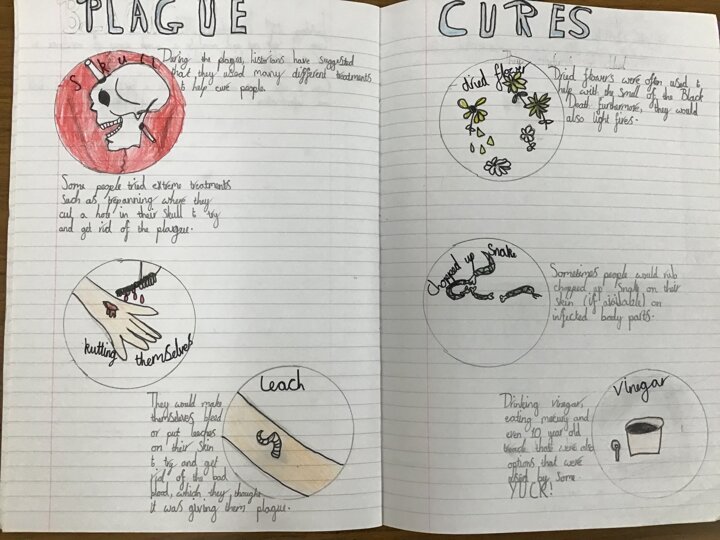 PLAGUE
Skull
During the plague, historians have suggested
that they used many different treatments
to help cure people.
Some people tried extreme treatments
such as trepanning where they
cut a hole in their skull to try
and get rid of the plaugue.
kutting themselves
Leach
They would make
themselves bleed
or put leaches
on their skin
to try and get
rid of the bad
blood, which they thought
it was giving them plague.
CURES
dried flower
Dried flowers were often used to
help with the smell of the Black
Death. Furthermore, they would
also light fires.
Chopped up Snake
Sometimes people would rub
chopped up snake on their
skin (if available) on
infected body parts.
Vinegar
Drinking vinegar,
eating mercury and
even 10 year old
treacle were also
options that were
used by some.
YUCK!